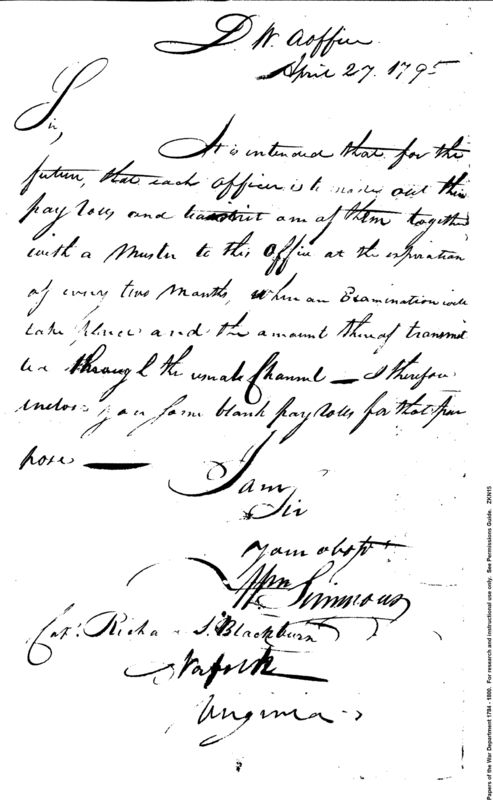 D. W. A office
April 27. 1795
Sir,
It is intended that for the
future, that each officer is to make out this
pay roles and transmit am of them together
with a Muster to this Office at the expiration
of every two Months, when an Examination will
take place and the amount thereof transmit
ted through the usuale Channel — I therefore
enclose you some blank pay roles for that pur
pose —
I am
Sir
your obdt
Wm Simmons
Capt. Richard S. Blackburn
Norfolk
Virginia
Papers of the War Department 1784 - 1800. For research and instructional use only. See Permissions Guide. ZKN15